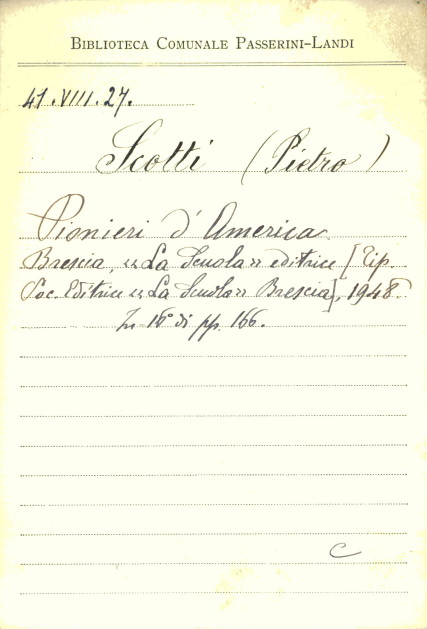 BIBLIOTECA COMUNALE PASSERINI-LANDI
41.VIII.27.
Scotti (Pietro)
Pionieri d'America
Brescia, «La Scuola» editrice [Tip.
Soc. Editrice «La Scuola» Brescia], 1948.
In 16° di pp. 166.
C